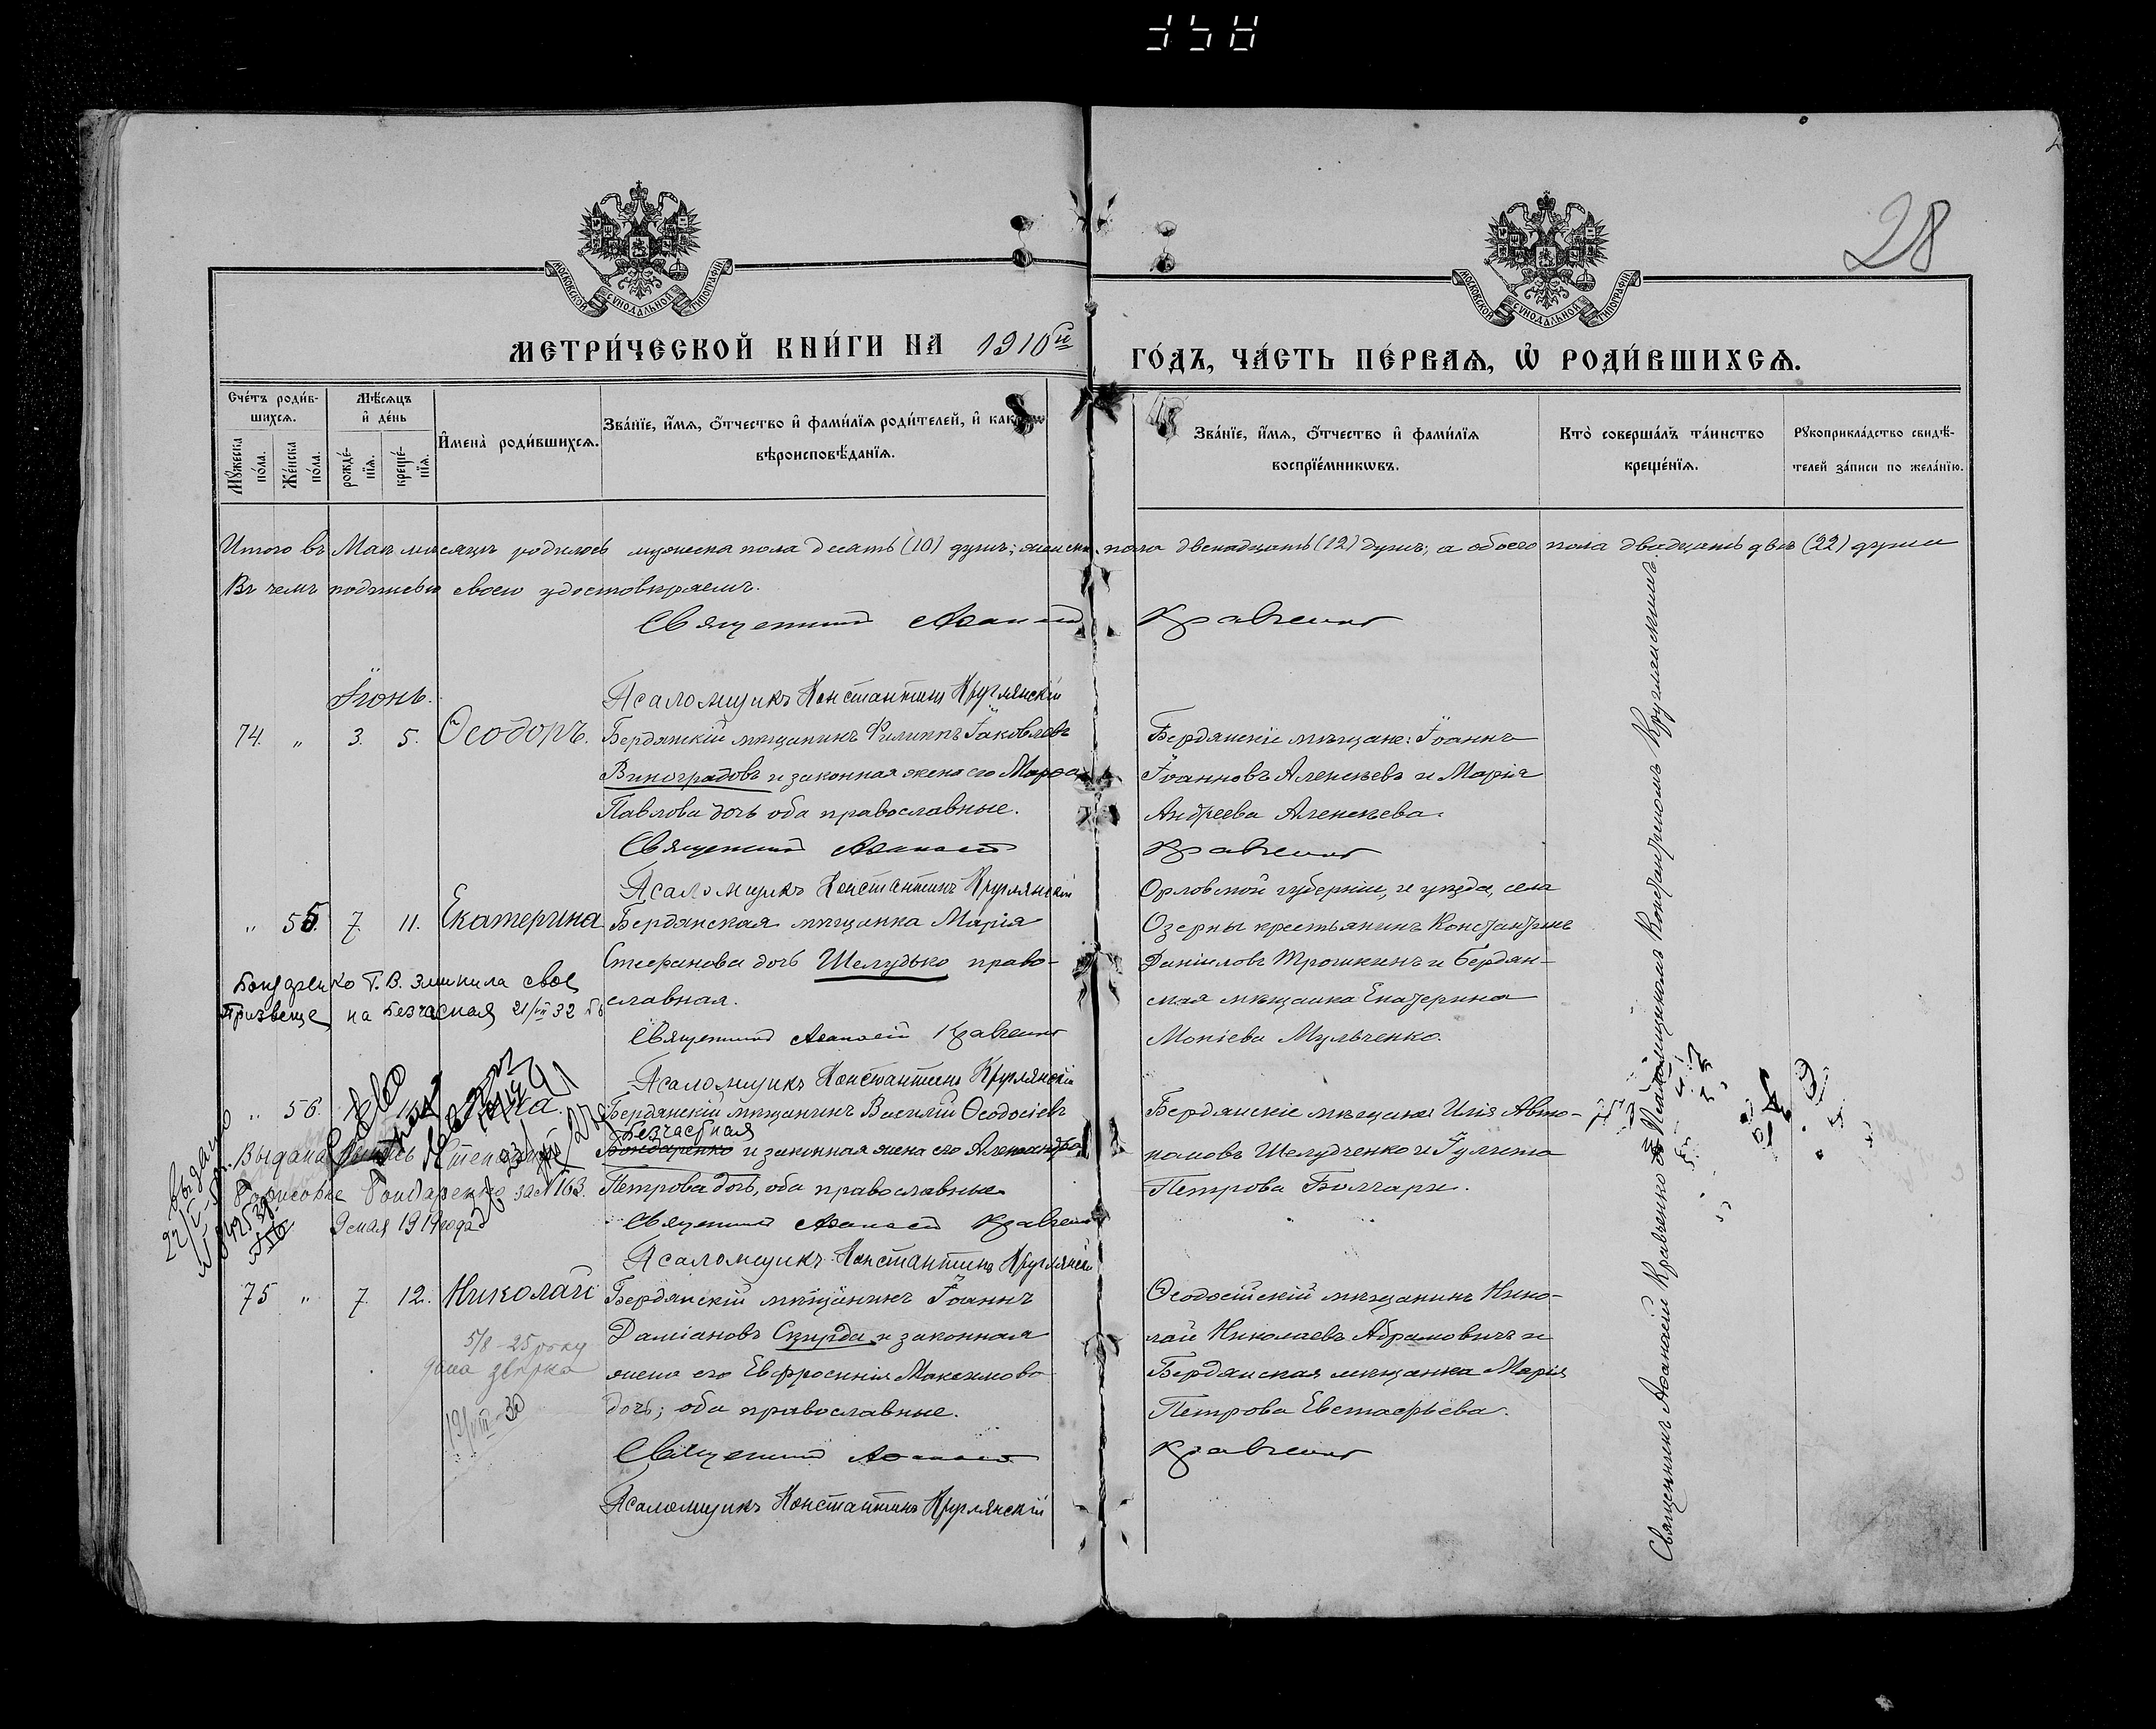 28
МОСКОВСКОЙ СѴНОДАЛЬНОЙ ТИПОГРАФІИ
МОСКОВСКОЙ СѴНОДАЛЬНОЙ ТИПОГРАФІИ
МЕТРИ́ЧЕСКОЙ КНИ́ГИ НА 1910й ГО́ДЪ, ЧА́СТЬ ПЕ́РВАѦ, Ѡ҆ РОДИ́ВШИХСѦ.
Сче́тъ роди́вшихсѧ.
Мꙋ́жеска по́ла.
Же́нска по́ла.
Мѣ́сѧцъ и҆ де́нь
рожде́нїѧ.
креще́нїѧ.
И҆мена̀ роди́вшихсѧ.
Зва́нїе, и҆́мѧ, ѻ҆́тчество и҆ фами́лїѧ роди́телей, и҆
вѣроисповѣ́данїѧ.
Зва́нїе, и҆́мѧ, ѻ҆́тчество и҆ фами́лїѧ
воспрїе́мникѡвъ.
Кто̀ соверша́лъ та́инство
креще́нїѧ.
Рꙋкоприкла́дство свидѣ́телей за́писи по жела́нїю.
Итого въ Маѣ мѣсяцѣ родилось мужеска пола десять (10) душъ; женска пола двенадцать (12) душъ, а обоего пола двадцать двѣ (22) души
Въ чемъ подписью своею удостовѣряемъ.
Священникъ Аѳанасій Кравченко
Іюнь.
Псаломщикъ Константинъ Круглянскій
74. „ 3. 5. Ѳеодоръ. Бердянскій мѣщанинъ Филиппъ Іаковлевъ
Виноградовъ и законная жена его Марѳа
Павлова дочь оба православные.
Священникъ Аѳанасій Кравченко
Бердянскіе мѣщане: Іоаннъ
Іоанновъ Алексѣевъ и Марія
Андреева Алексѣева.
Псаломщикъ Константинъ Круглянскій
„ 55. 7. 11. Екатерина Бердянская мѣщанка Марія
Стефанова дочь Шелудько право-
славная.
Священникъ Аѳанасій Кравченко
Орловской губерніи, и уѣзда, села
Озерны крестьянинъ Константинъ
Даніиловъ Трошкинъ и Бердян-
ская мѣщанка Екатерина
Мокіева Мульченко.
Бондаренко Т.В. змінила своє
Призвеще на Безчасная 21/VII 32
Псаломщикъ Константинъ Круглянскій
„ 56. Бердянскій мѣщанинъ Василій Ѳеодосіевъ
Безчасная
Бондаренко и законная жена его Александра
Петрова дочь, оба православные.
Священникъ Аѳанасій Кравченко
Бердянскіе мѣщане: Илія Авто-
номовъ Шелудченко и Іулита
Петрова Болгари.
Выдана
Бондаренко за № 163.
9 мая 1919 года
Псаломщикъ Константинъ Круглянскій
75 „ 7. 12. Николай Бердянскій мѣщанинъ Іоаннъ
Даміановъ Скирда и законная
жена его Евфросинія Максимова
дочь; оба православные.
Священникъ Аѳанасій Кравченко
Псаломщикъ Константинъ Круглянскій
Ѳеодосійскій мѣщанинъ Нико-
лай Николаевъ Абрамовичъ и
Бердянская мѣщанка Марія
Петрова Евстафьева.
5/8 - 25 року
19/VIII-30
Священникъ Аѳанасій Кравченко съ Псаломщикомъ Константиномъ Круглянскимъ